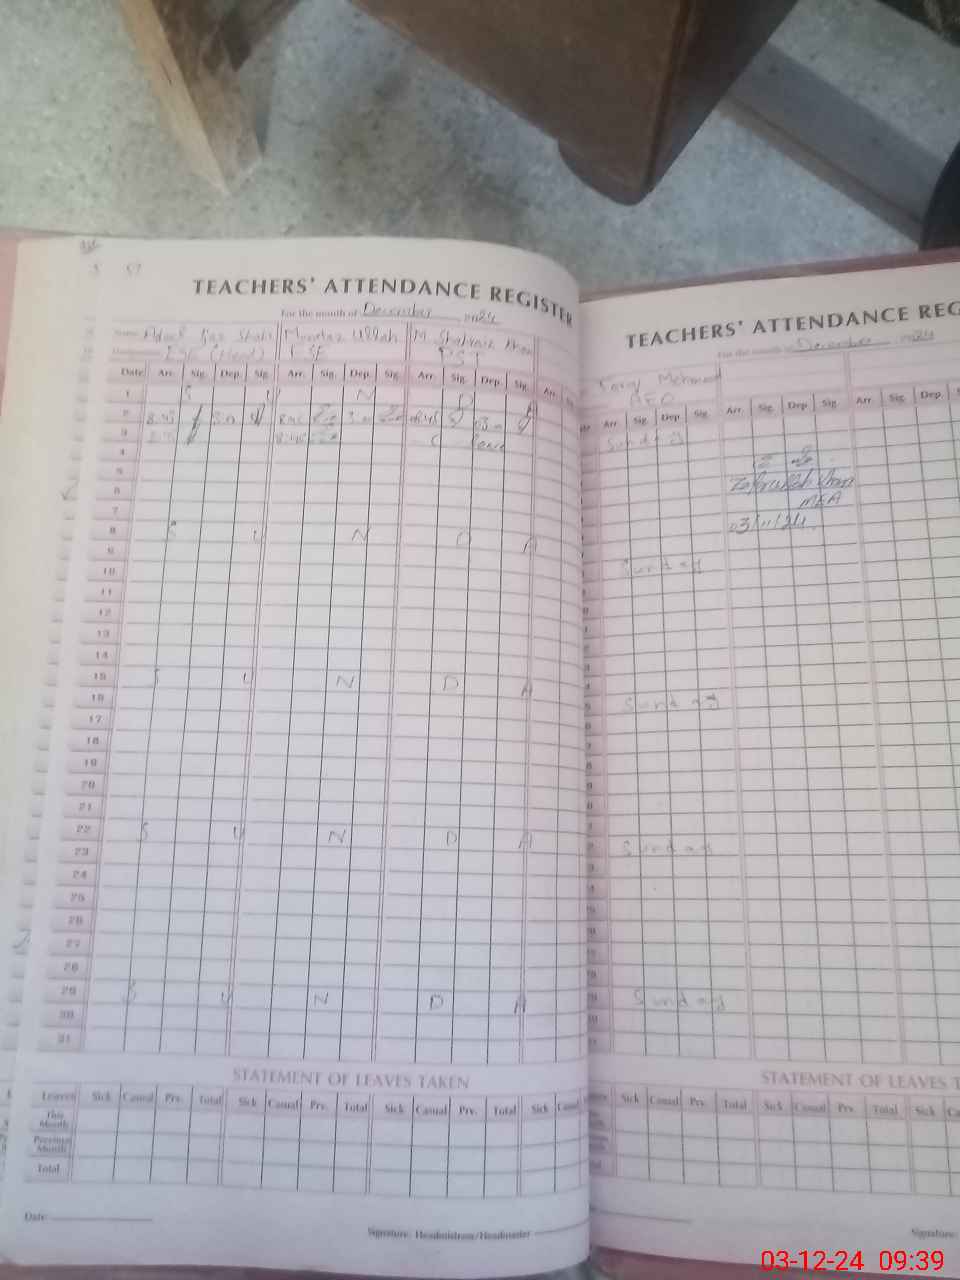 TEACHERS' ATTENDANCE REGISTER
For the month of December 2024
Name
Mumtaz Ullah
M. Shahraiz Khan
ESE (Head)
ESE
PST
Date Arr. Sig. Dep. Sig. Arr. Sig. Dep. Sig. Arr. Sig. Dep. Sig. Arr.
1 S U N D A
2 8:45 8:45
3 8:45 C Leave
4
5
6
7
8 S U N D A
9
10
11
12
13
14
15 S U N D A
16
17
18
19
20
21
22 S U N D A
23
24
25
26
27
28
29 S U N D A
30
31
STATEMENT OF LEAVES TAKEN
Leaves Sick Casual Prv. Total Sick Casual Prv. Total Sick Casual Prv. Total Sick Casual
This Month
Previous Month
Total
Date
Signature: Headmistress/Headmaster
TEACHERS' ATTENDANCE REG
For the month of December 2024
Mehmood
AEO
Arr. Sig. Dep. Sig. Arr. Sig. Dep. Sig. Arr. Sig. Dep.
Sunday
Zafarullah Khan
MEA
03/11/24
Sunday
Sunday
Sunday
Sunday
STATEMENT OF LEAVES T
Sick Casual Prv. Total Sick Casual Prv. Total Sick
Signature:
03-12-24 09:39